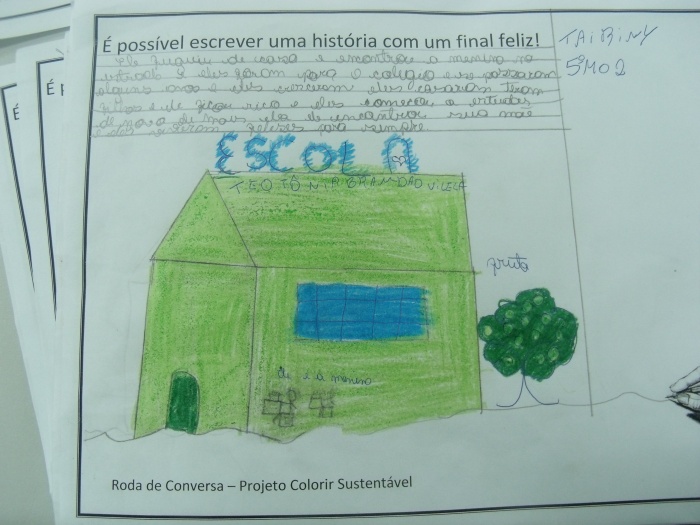 É possível escrever uma história com um final feliz!
TAiBiNY
5º M02
Ele fugiu de casa e encontrou a menina na
estrada E eles foram para o colégio e se passaram
alguns anos e eles cresceram eles casaram tiveram
filhos e ele ficou rico e eles começou a estudar
de novo de mais ela desencontrou sua mãe
e eles viveram felizes para sempre
ESCOLA
TEOTÔNIA BRANDÃO VILELA
fruta
ele e a menina
Roda de Conversa – Projeto Colorir Sustentável
É F
É